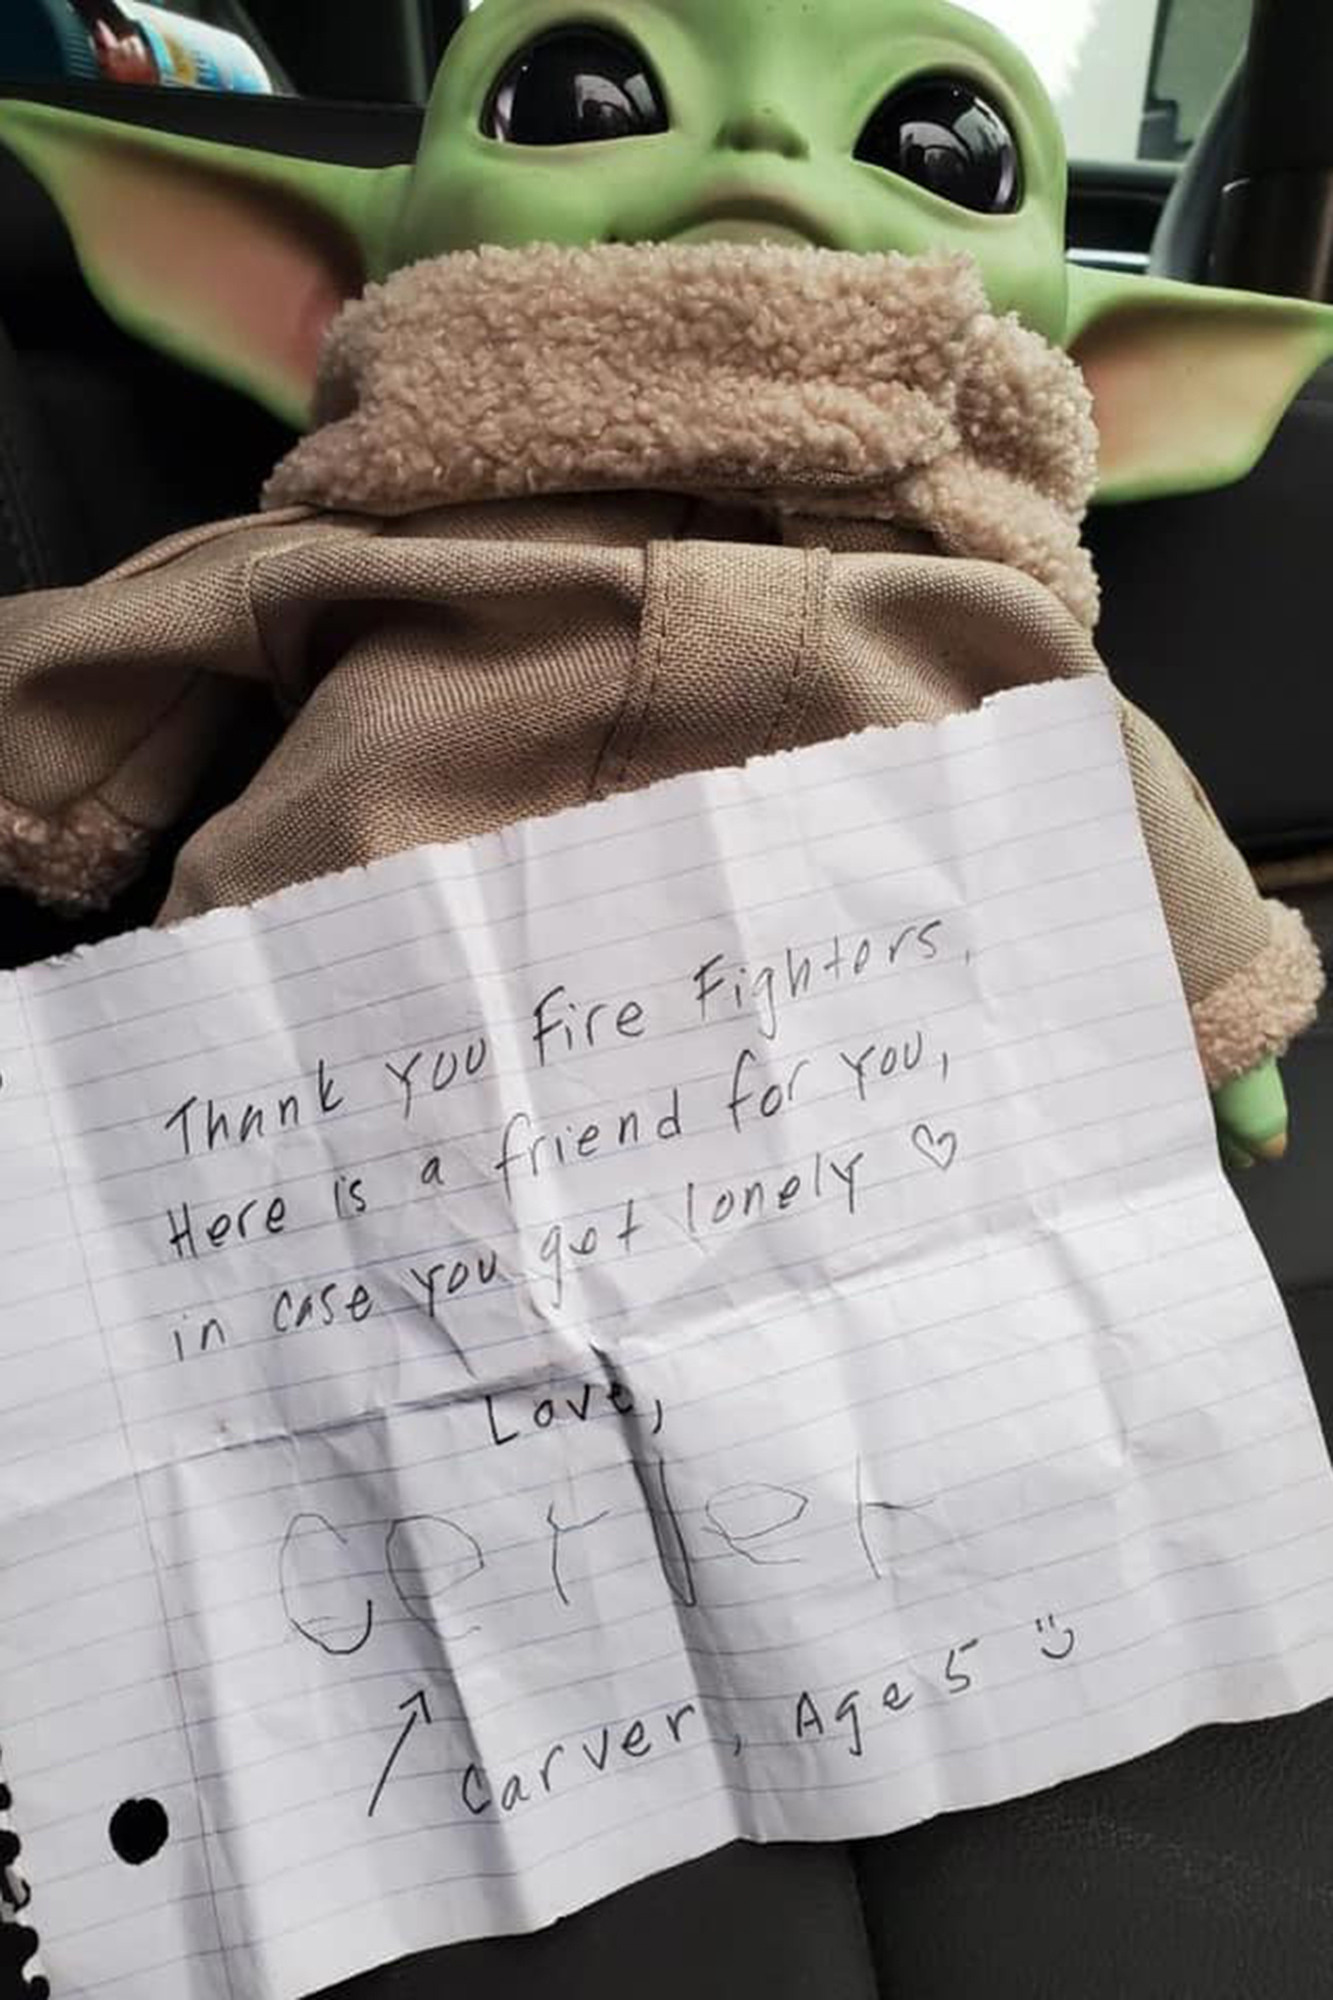 Thank you Fire Fighters,
Here is a friend for you,
in case you get lonely ♡
Love,
Carver
Carver, Age 5